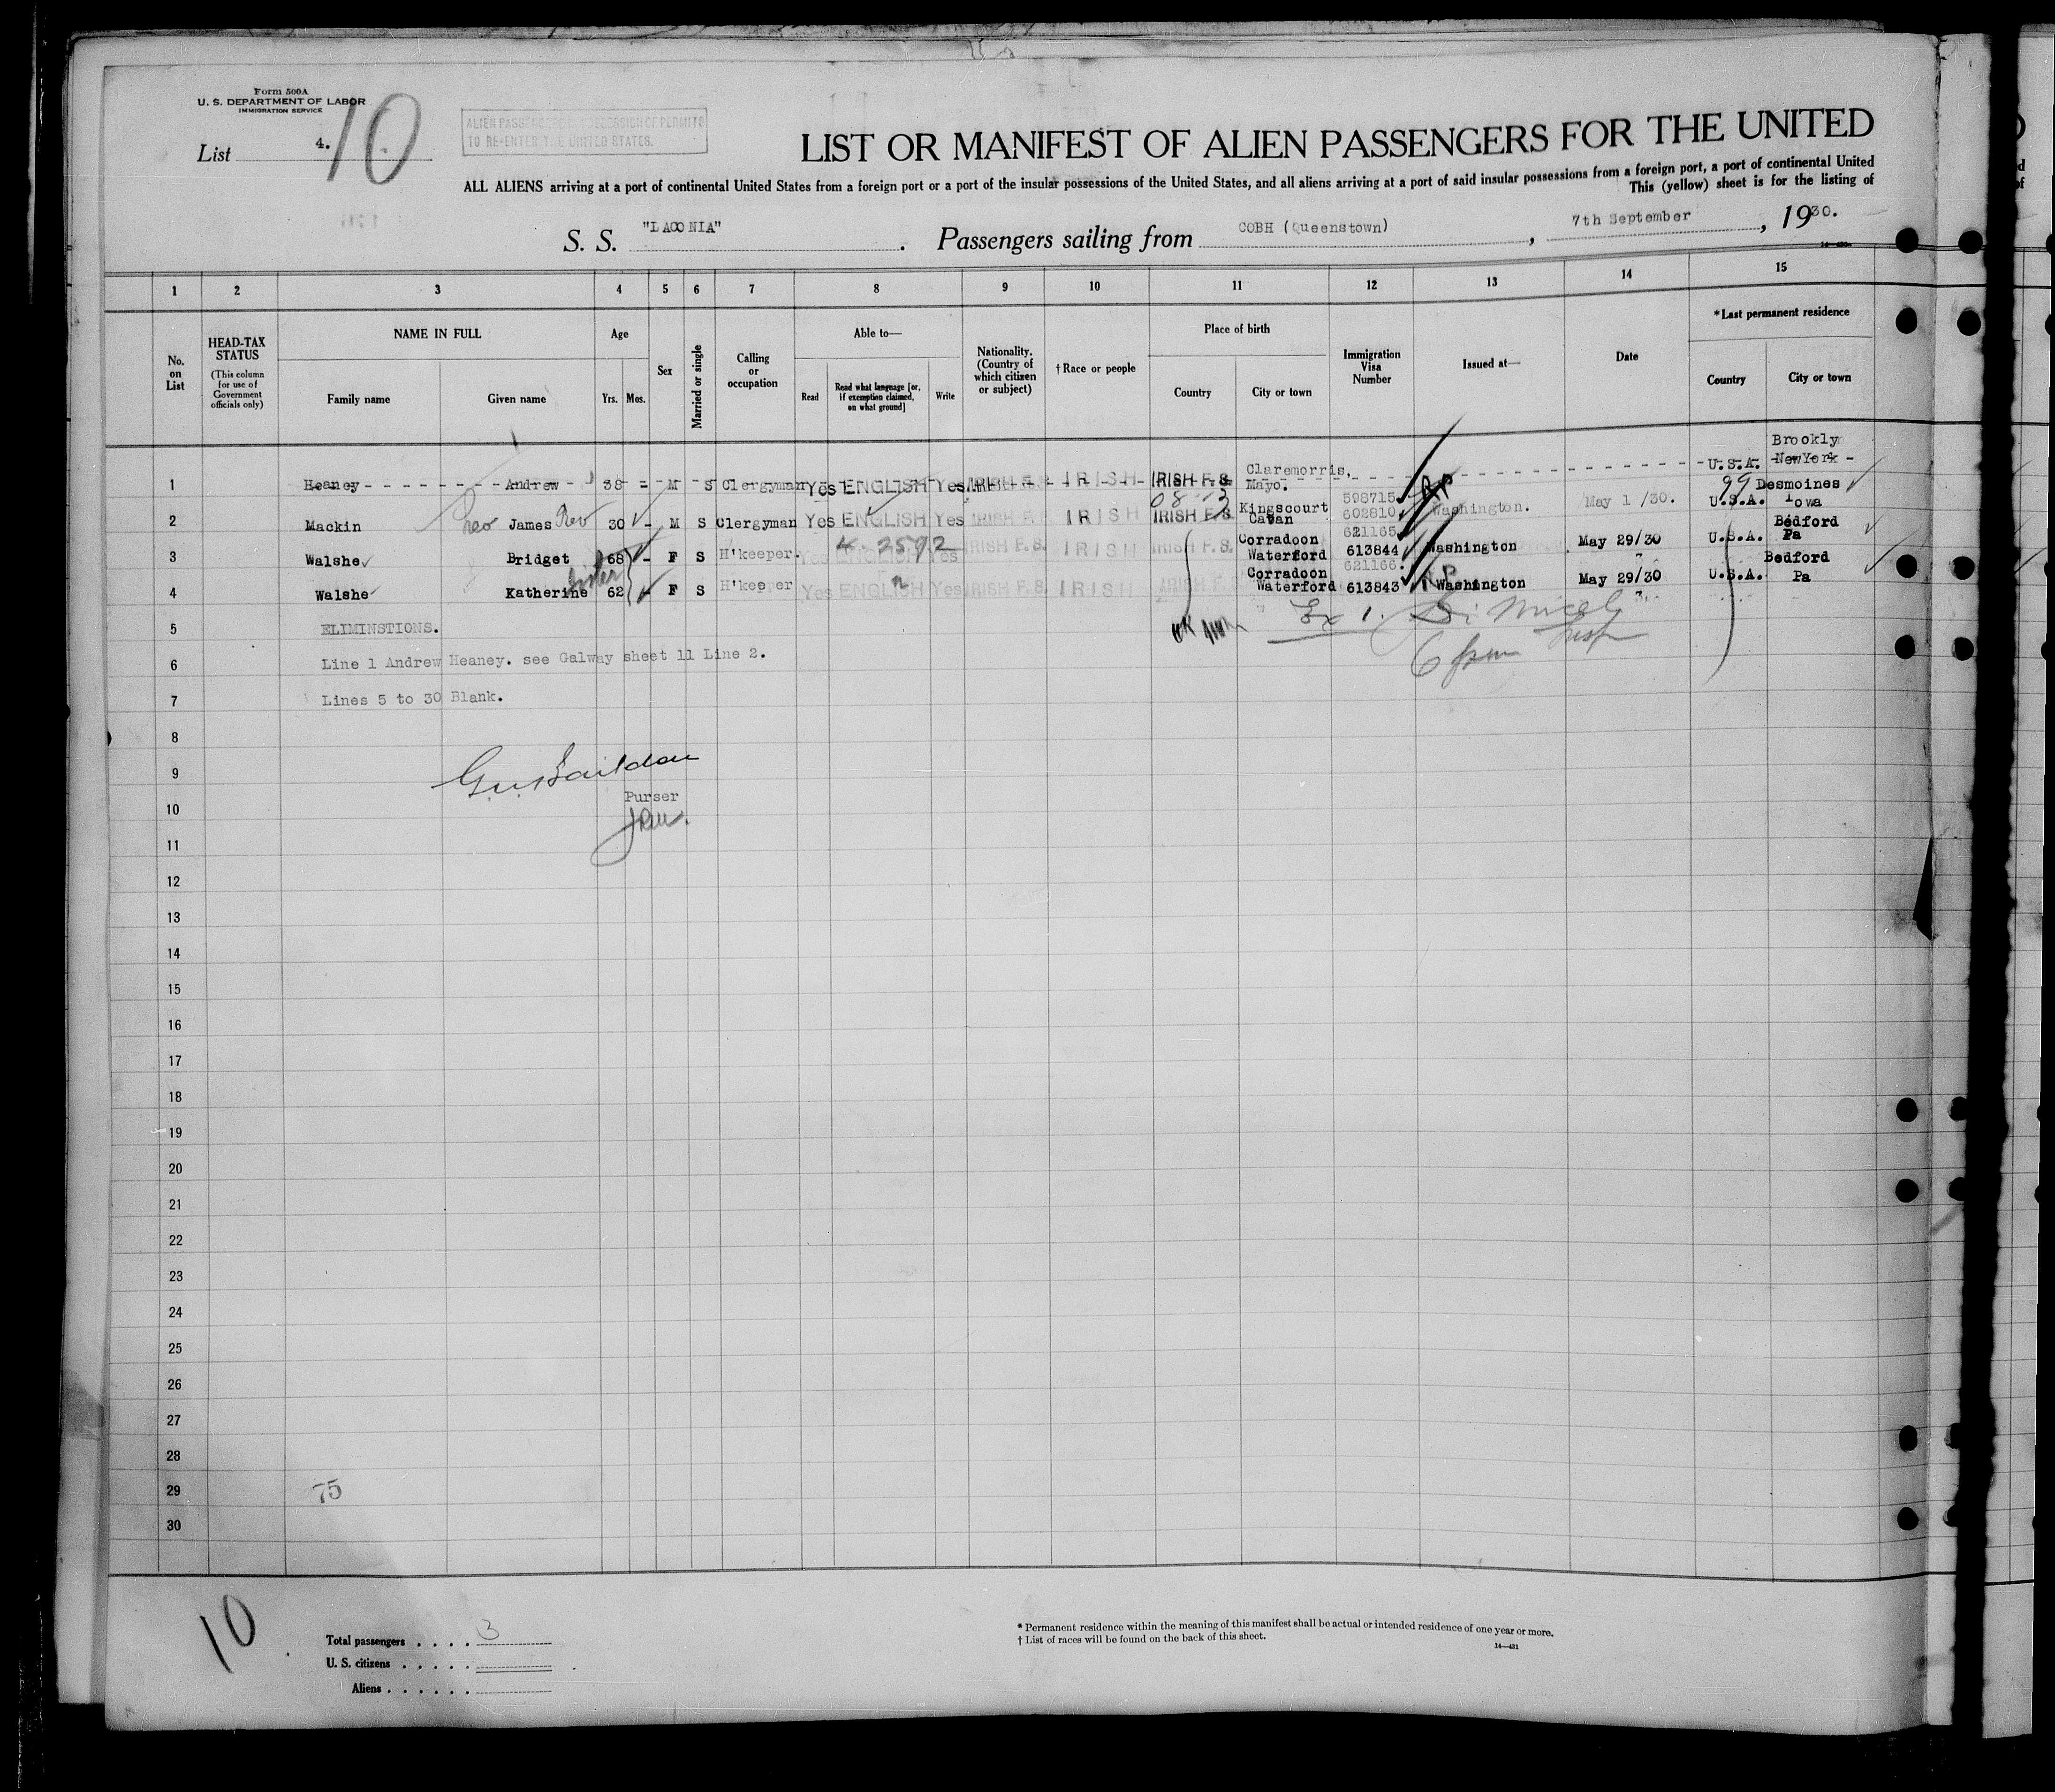 Form 500A
U. S. DEPARTMENT OF LABOR
IMMIGRATION SERVICE
List 4. 10
ALIEN PASSENGERS IN POSSESSION OF PERMITS
TO RE-ENTER THE UNITED STATES.
LIST OR MANIFEST OF ALIEN PASSENGERS FOR THE UNITED
ALL ALIENS arriving at a port of continental United States from a foreign port or a port of the insular possessions of the United States, and all aliens arriving at a port of said insular possessions from a foreign port, a port of continental United
This (yellow) sheet is for the listing of
S. S. "LACONIA" . Passengers sailing from COBH (Queenstown) , 7th September , 1930.
1 2 3 4 5 6 7 8 9 10 11 12 13 14 15
No. on List
HEAD-TAX STATUS
(This column for use of Government officials only)
NAME IN FULL
Family name Given name
Age
Yrs. Mos.
Sex
Married or single
Calling or occupation
Able to—
Read
Read what language [or, if exemption claimed, on what ground]
Write
Nationality. (Country of which citizen or subject)
†Race or people
Place of birth
Country City or town
Immigration Visa Number
Issued at—
Date
*Last permanent residence
Country City or town
1 Heaney Andrew 38 - M S Clergyman Yes ENGLISH Yes IRISH F.S. IRISH IRISH F.S. Claremorris, Mayo. U.S.A. Brookly NewYork
2 Mackin Rev James Rev 30 - M S Clergyman Yes ENGLISH Yes IRISH F.S. IRISH IRISH F.S. Kingscourt Cavan 598715 602810 Washington. May 1 /30. 99 U.S.A. Desmoines Iowa
3 Walshe Bridget 68 - F S H'keeper. Yes 4-2592 Yes IRISH F.S. IRISH IRISH F.S. Corradoon Waterford 621165 613844 Washington May 29/30 U.S.A. Bedford Pa
4 Walshe Katherine sister 62 - F S H'keeper Yes ENGLISH Yes IRISH F.S. IRISH IRISH F.S. Corradoon Waterford 621166. 613843 Washington May 29/30 U.S.A. Bedford Pa
5 ELIMINSTIONS.
6 Line 1 Andrew Heaney. see Galway sheet 11 Line 2.
7 Lines 5 to 30 Blank.
8
9
Purser
10
11
12
13
14
15
16
17
18
19
20
21
22
23
24
25
26
27
28
29 75
30
10
Total passengers . . . . 3
U. S. citizens . . . . .
Aliens . . . . . .
* Permanent residence within the meaning of this manifest shall be actual or intended residence of one year or more.
† List of races will be found on the back of this sheet.
14—431